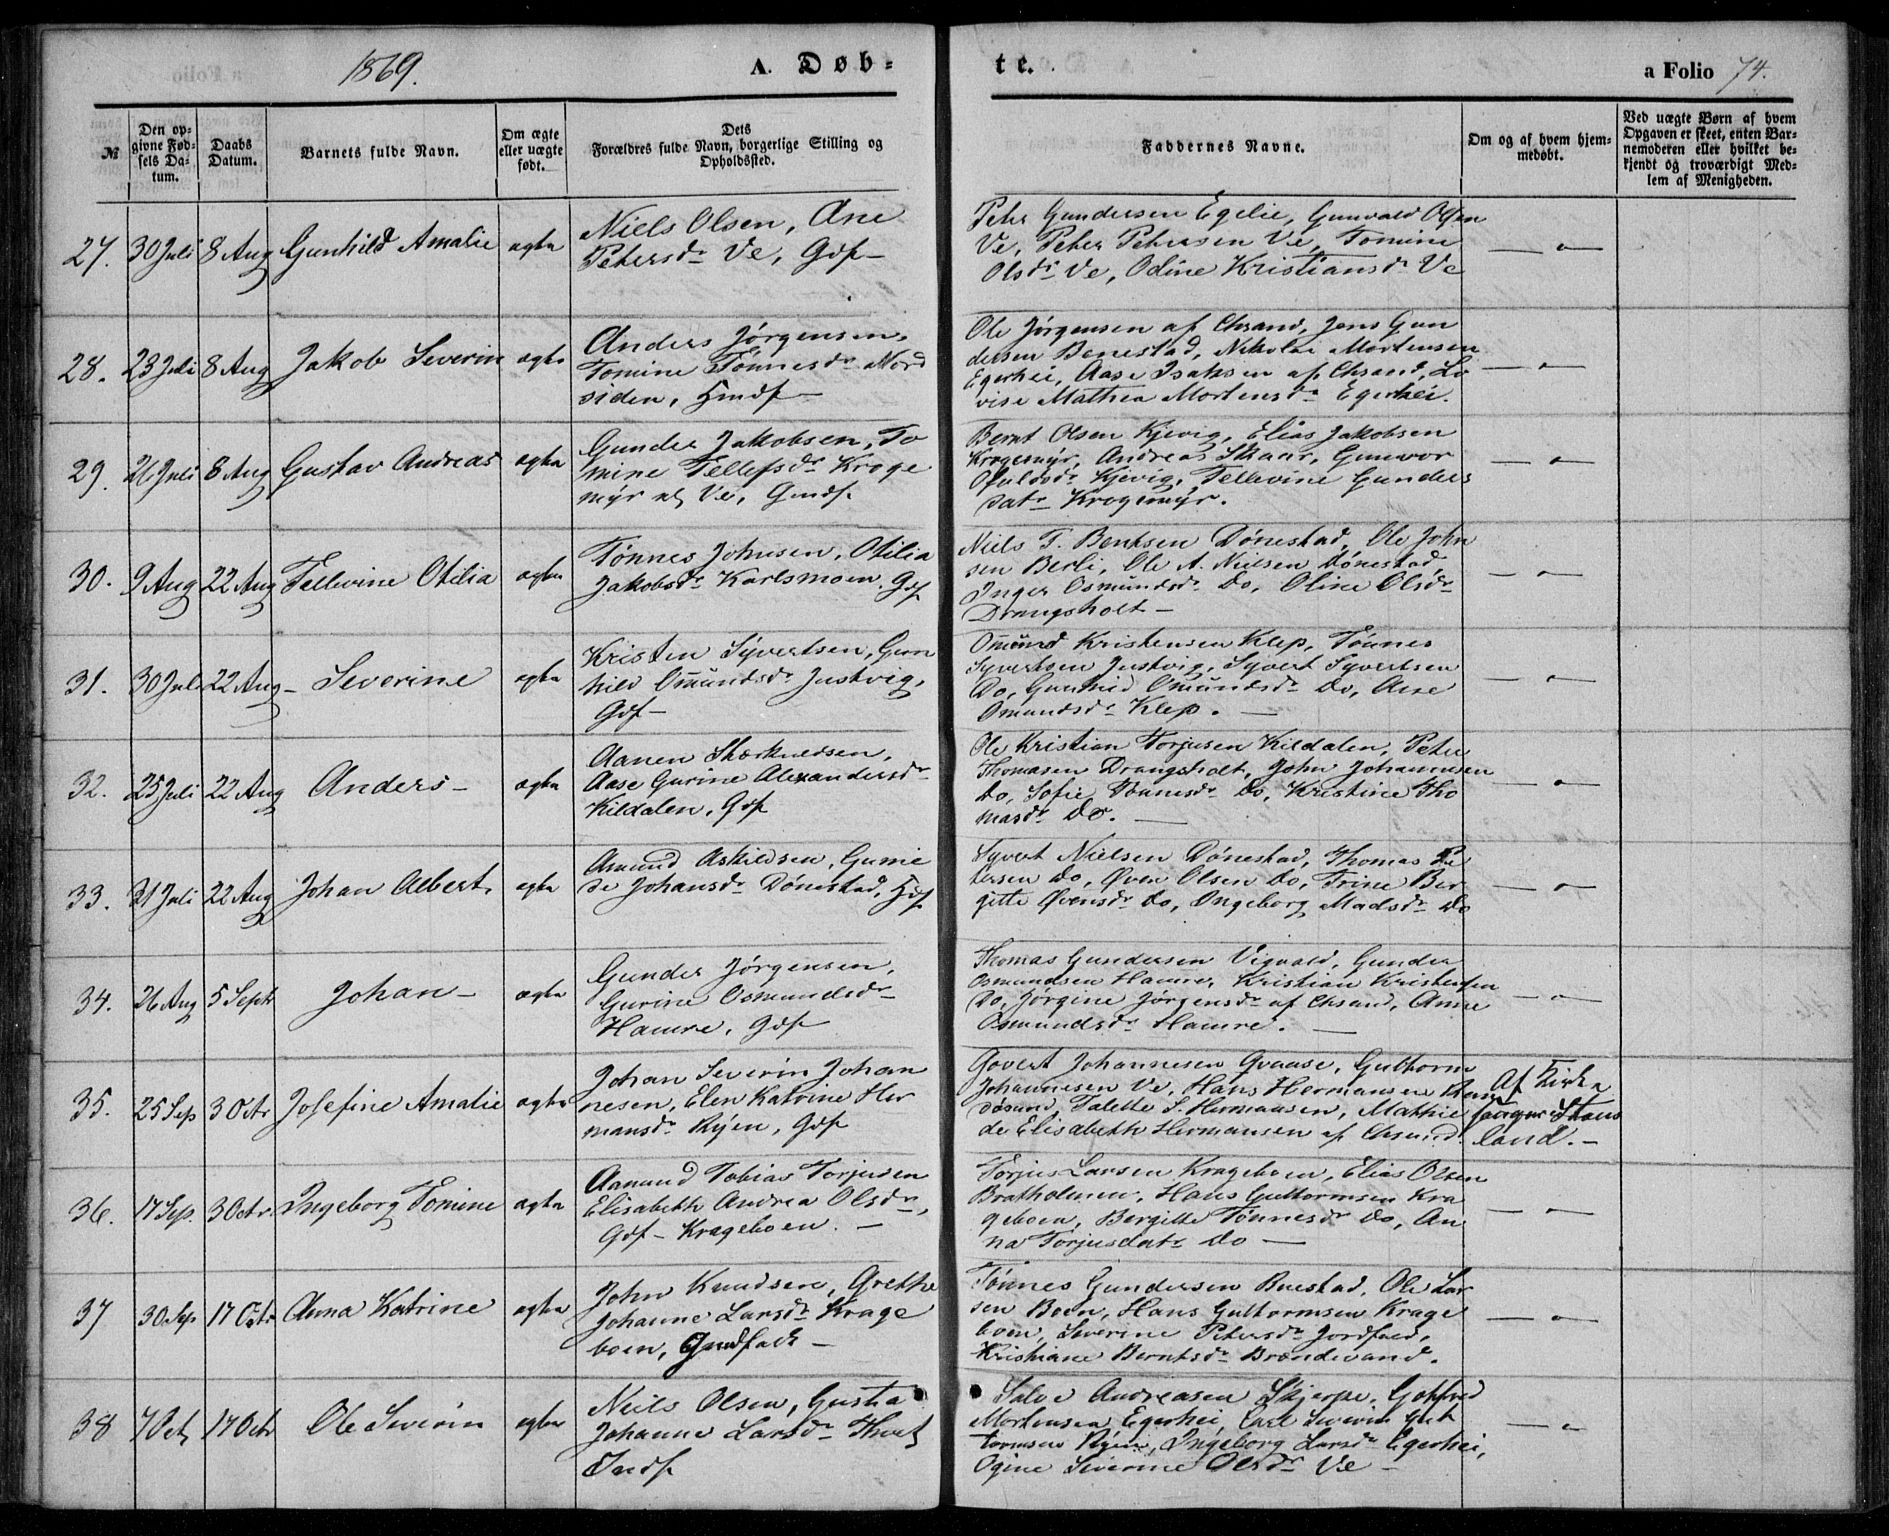 1869.
A. Døb-
te.
a Folio 74.
№
Den op-
givne Fød-
sels Da-
tum.
Daabs
Datum.
Barnets fulde Navn.
Om ægte
eller uægte
født.
Dets
Forældres fulde Navn, borgerlige Stilling og
Opholdssted.
Faddernes Navne.
Om og af hvem hjem-
medøbt.
Ved uægte Børn af hvem
Opgaven er skeet, enten Bar-
nemoderen eller hvilket be-
kjendt og troværdigt Med-
lem af Menigheden.
27. 30 Juli 8 Aug Gunhild Amalie ægta
Niels Olsen, Ane
Petersdr Ve, Gdf-
Peter Gundersen Egelie, Gunvald Olsen
Ve, Peter Petersen Ve, Tomine
Olsdr Ve, Odine Kristiansdr Ve
— " —
28. 23 Juli 8 Aug Jakob Severin ægta
Anders Jørgensen,
Tomine Tønnesdr Nord
siden, Hmdf
Ole Jørgensen af Chrsand, Jens Gun
dersen Benestad, Nikolai Mortensen
Egerhei, Aase Isaksen af Chrsand, Lo
vise Mathea Mortensdr Egerhei.
— " —
29. 26 Juli 8 Aug Gustav Andreas ægta
Gunder Jakobsen, To
mine Tellefsdr Kroge
myr af Ve, Gmdf.
Bernt Olsen Kjevig, Elias Jakobsen
Krogemyr, Andrea Skaar, Gunvor
Kjevig, Tellevine Gunders
datr Krogemyr.
— " —
30. 9 Aug 22 Aug Tellevine Otilia ægta
Tønnes Johnsen, Otilia
Jakobsdr Karlsmoen. Gdf
Niels T. Bentsen Dønestad, Ole John
sen Berli, Ole A. Nielsen Dønestad,
Inger Osmundsdr Do, Oline Olsdr
Drangsholt —
— " —
31. 30 Juli 22 Aug- Severine ægta
Kristen Syvertsen, Gun
hild Omundsdr Justvig,
Gdf-
Omund Kristensen Klep, Tønnes
Syvertsen Justvig, Syvert Syvertsen
Do, Gunhild Omundsdr Do, Ane
Omundsdr Klep. —
— " —
32. 25 Juli 22 Aug Anders- ægta
Aanen Stærkildsen,
Aase Gurine Alexandersdr
Kildalen, Gdf
Ole Kristian Torjusen Kildalen, Peter
Thomasen Drangsholt, John Johannesen
Do, Sofie Do, Kristine Tho
masdr Do. —
— " —
33. 31 Juli 22 Aug Johan Albert, ægta
Amund Askildsen, Gunne
de Johansdr Dønestad, Hdf
Syvert Nielsen Dønestad, Thomas Pe
tersen Do, Øven Olsen Do, Trine Ber
gitte Øvensdr Do, Ingeborg Madsdr Do
— " —
34. 26 Aug 5 Septr Johan- ægta
Gunder Jørgensen,
Gurine Osmundsdr
Hamre, Gdf
Thomas Gundersen Vigvold, Gunder
Osmundsen Hamre, Kristian Kristensen
Do, Jørgine Jørgensdr af Chrsand, Anne
Osmundsdr Hamre. —
— " —
35. 25 Sep 3 Octr Josefine Amalie ægta
Johan Severin Johan
nesen, Elen Katrine Her
mansdr Ryen, Gdf
Govert Johannesen Graase, Guthorm
Johannesen Ve, Hans Hermansen Ran
døsund, Talette S. Hermansen, Mathil
de Elisabeth Hermansen af Chrsand.
Af Kirke
sanger Staus
land. —
36. 17 Sep. 3 Octr Ingeborg Tomine ægta
Aanund Tobias Torjusen
Elisabeth Andrea Olsdr,
Gdf- Krageboen. —
Torjus Larsen Krageboen, Elias Olsen
Bratholmen, Hans Guttormsen Kra
geboen, Bergitte Tønnesdr Do, An
na Torjusdatr Do —
— " —
37 30 Sep 17 Octr Anna Katrine ægta
John Knudsen, Grethe
Johanne Larsdr Krage
boen, Gmdfolk —
Tønnes Gundersen Buestad, Ole Lar
sen Boen, Hans Guttormsen Krage
boen, Severine Petersdr Jordfald,
Kristiane Berntsdr Brændevand.
— " —
38 7 Oct 17 Octr Ole Severin ægta
Niels Olsen, Gusta
Johanne Larsdr
Indf
Salve Andreasen Skjerpe, Gotfred
Mortensen Egerhei, Carl Severin Gut
tormsen Ryen, Ingeborg Larsdr Egerhei,
Ogine Severine Olsdr Ve —
— " —